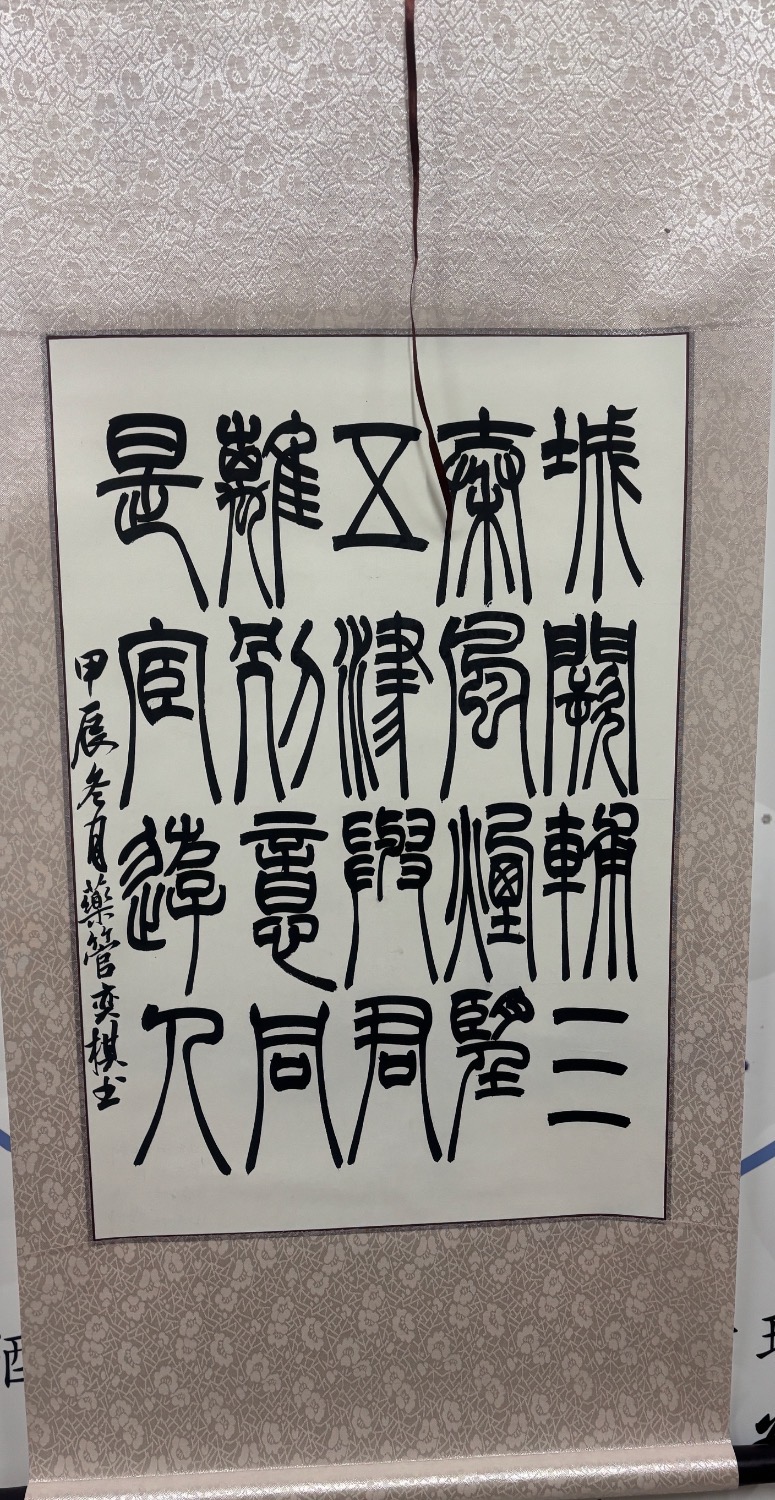 城闕輔三
秦風煙望
五津與君
離別意同
是宦遊人
甲辰冬月藥管奕棋书